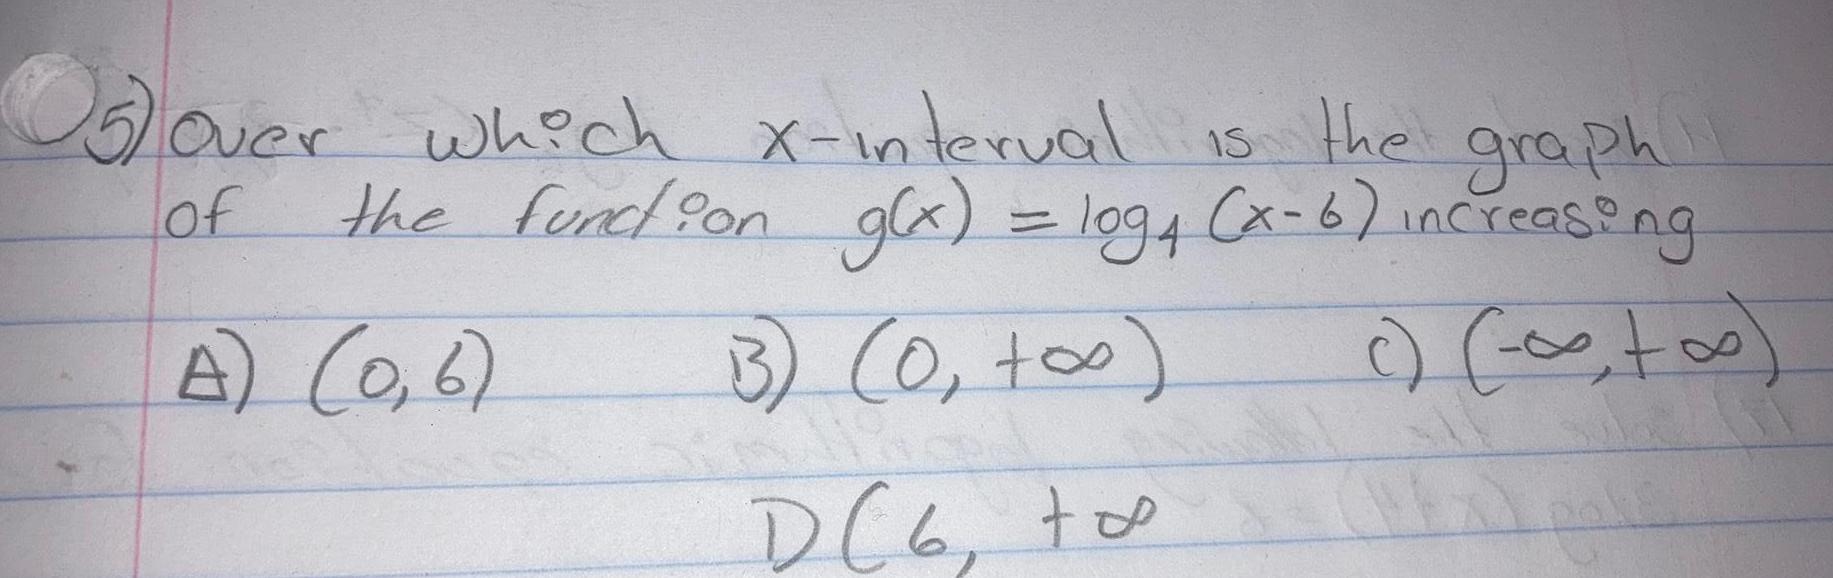 5) Over which x-interval is the graph
of the function g(x) = log₄ (x-6) increasing
A) (0,6) B) (0, +∞) C) (-∞,+∞)
D (6, +∞